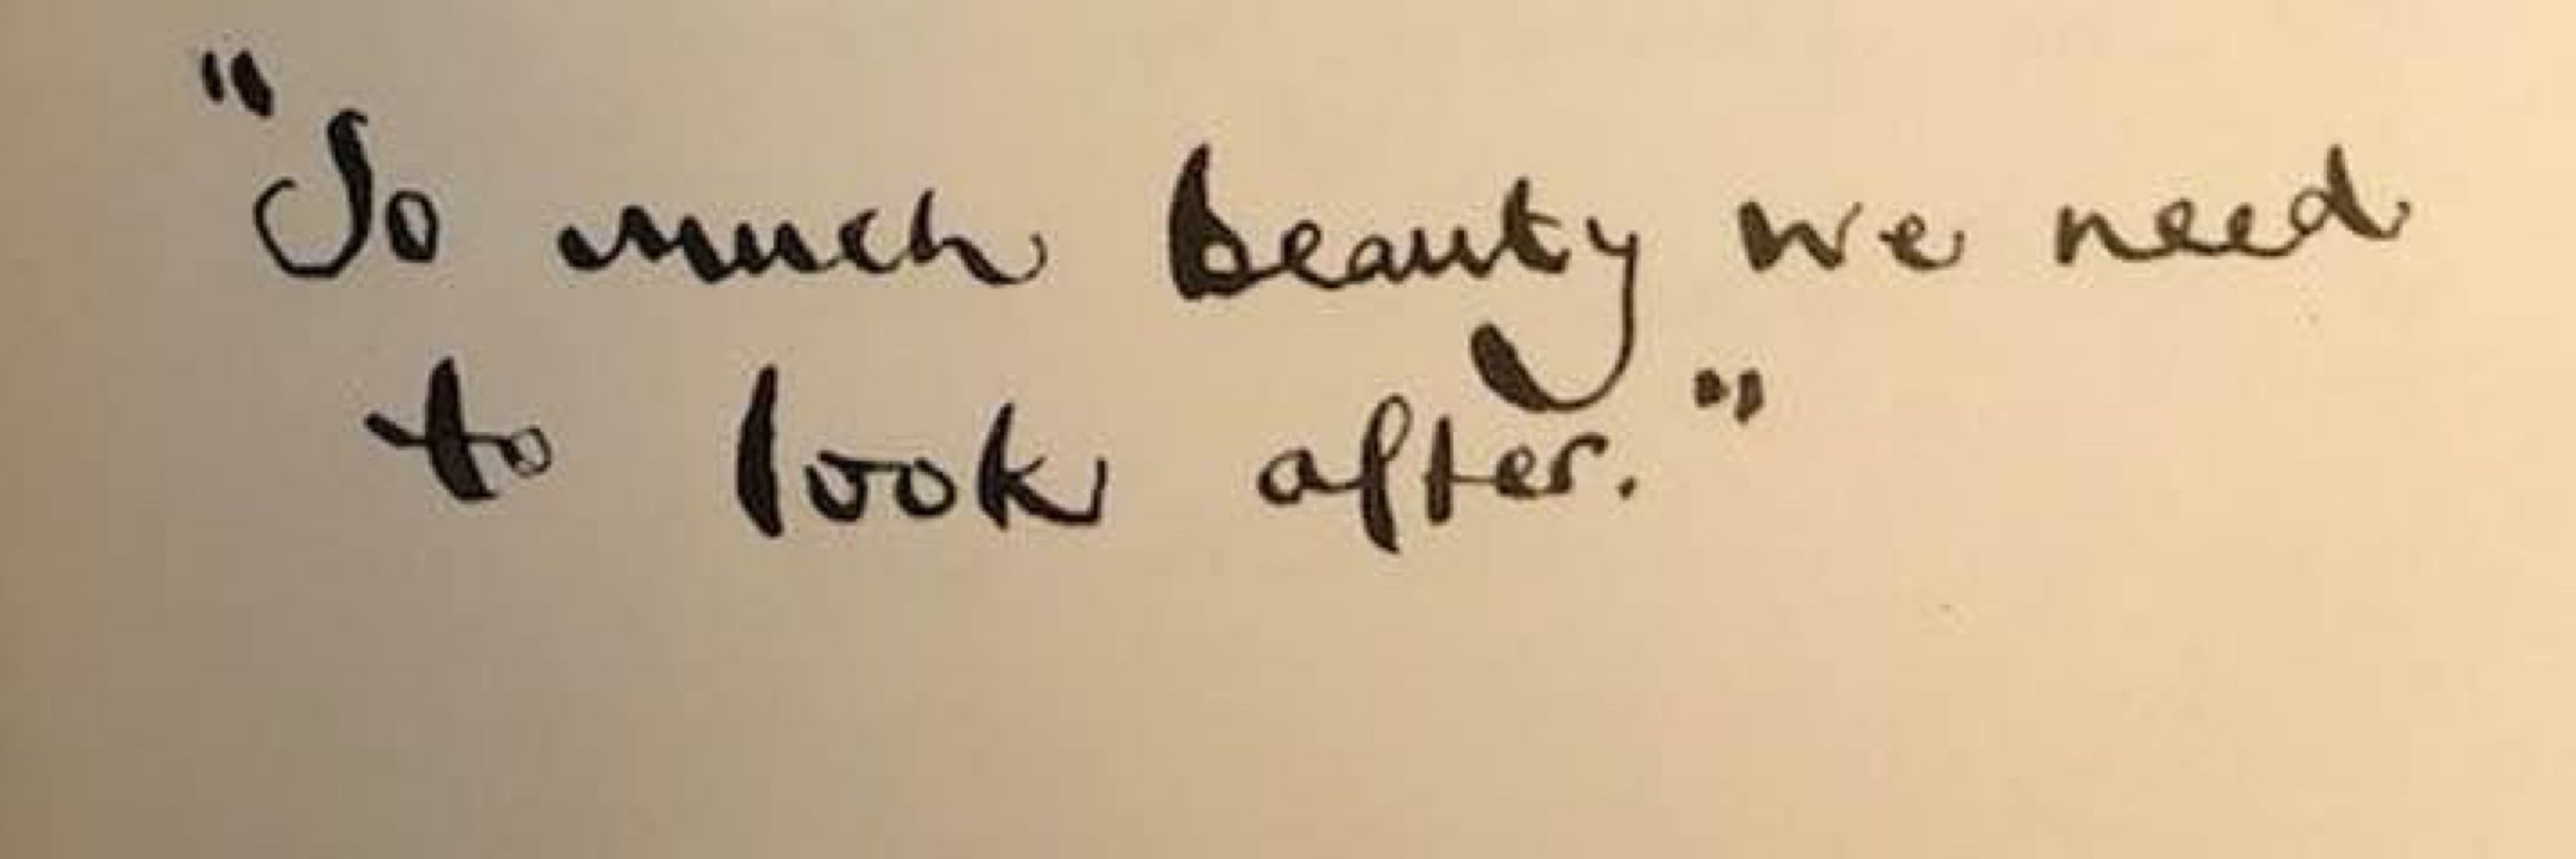 "So much beauty we need
to look after."